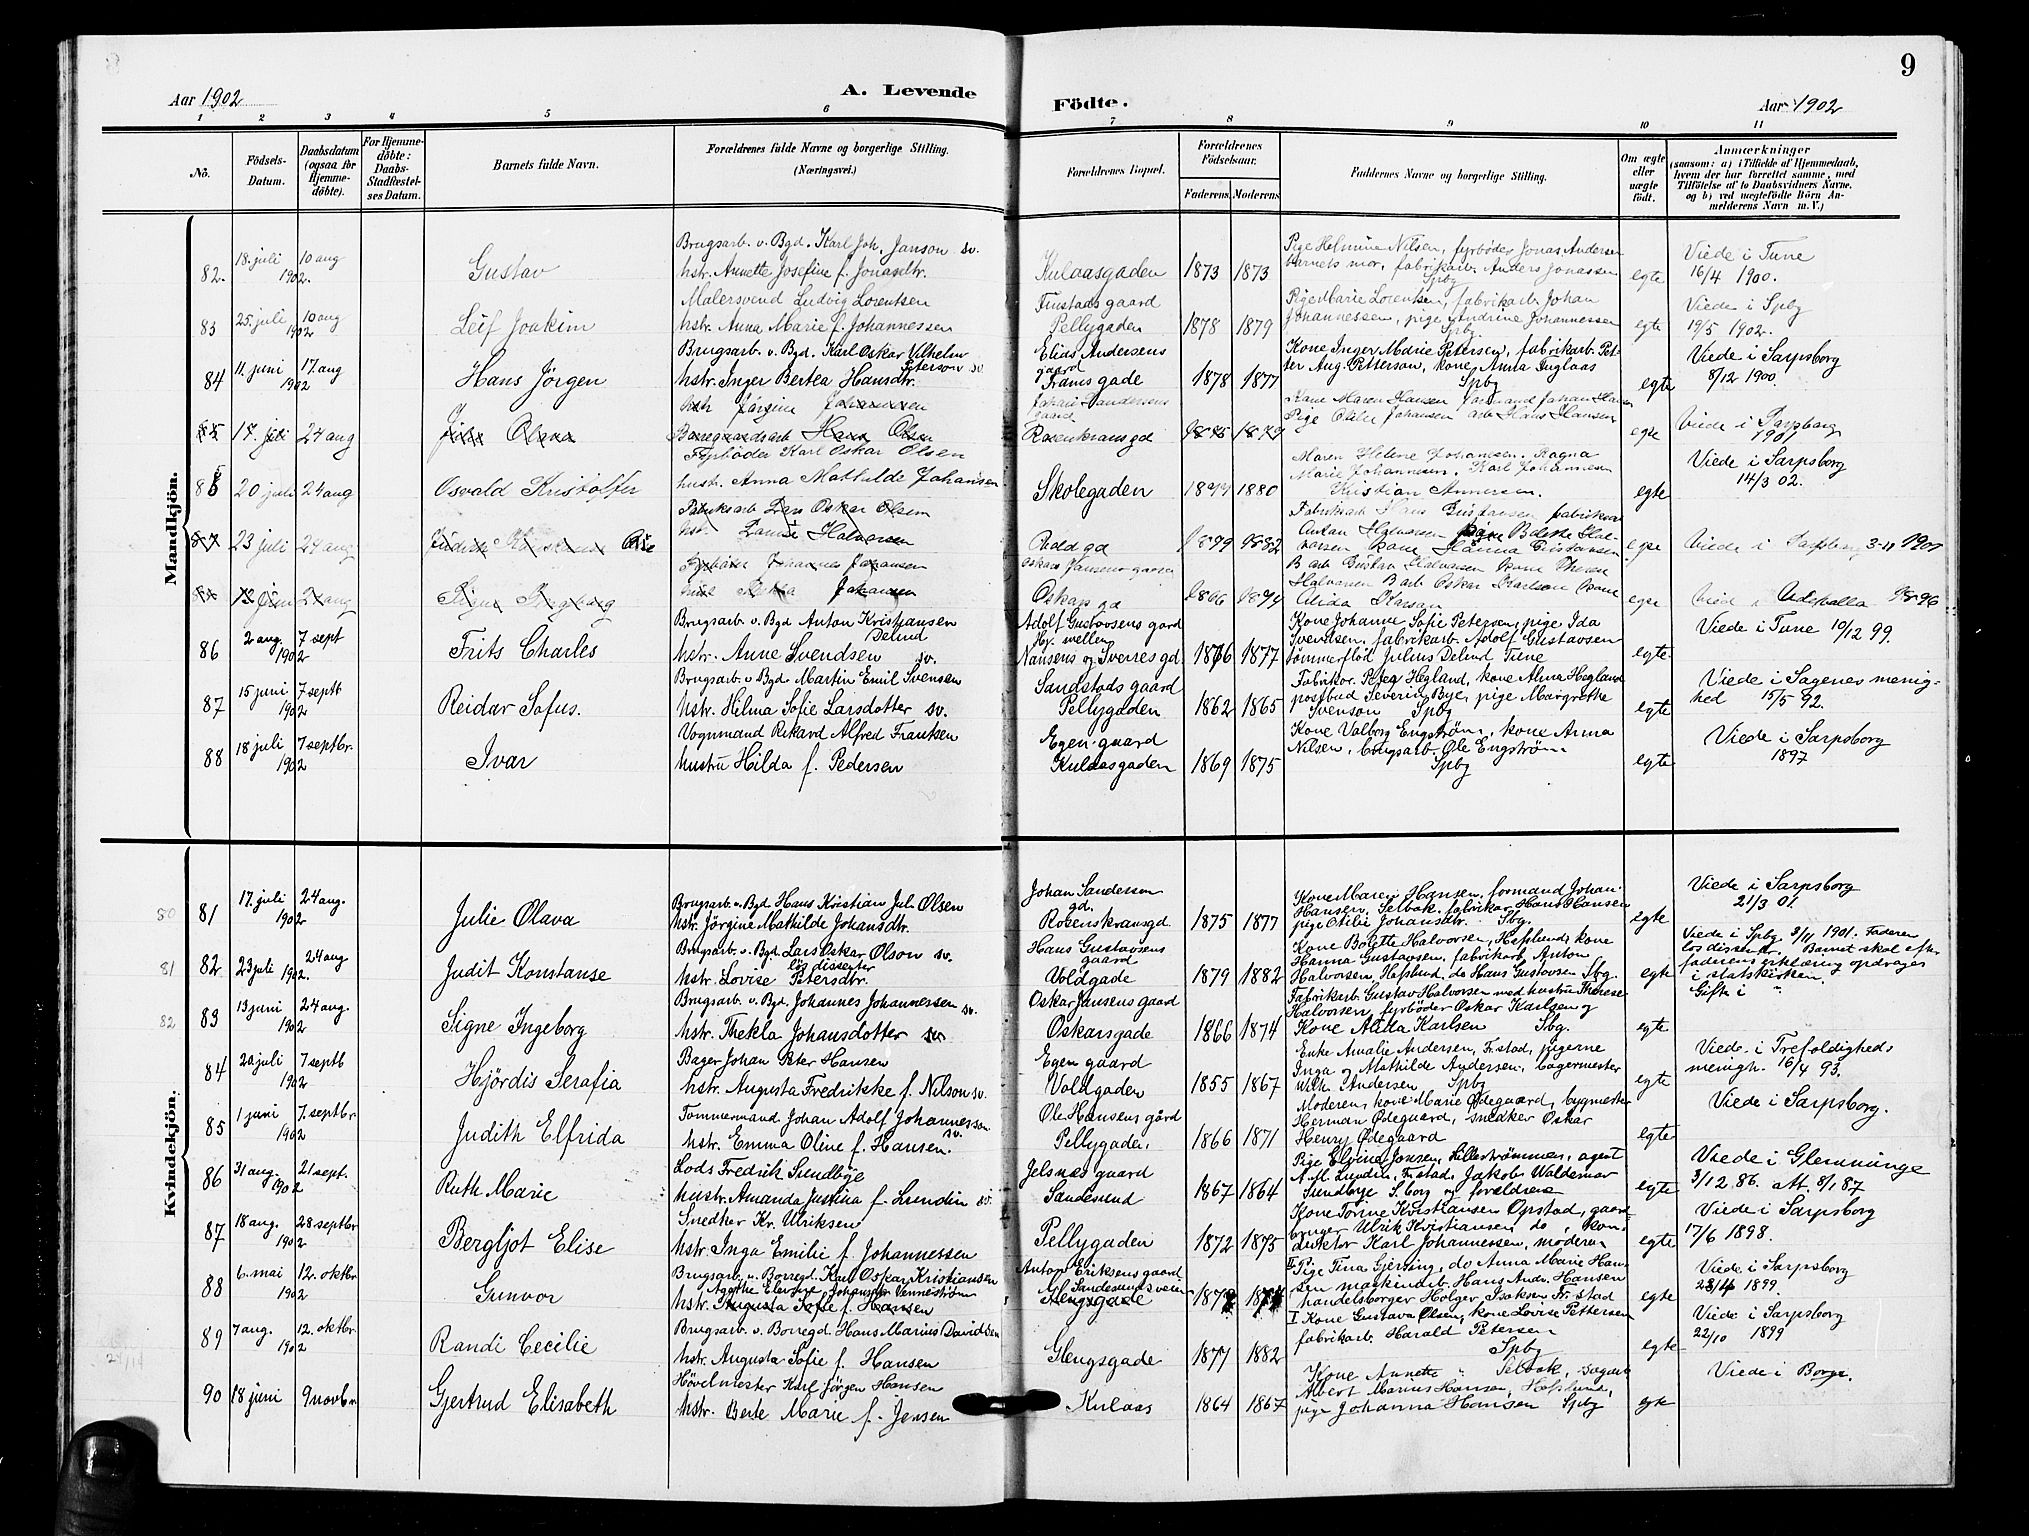 9
Aar 1902
A. Levende
Födte.
Aar 1902
1 2 3 4 5 6 7 8 9 10 11
No.
Födsels-Datum.
Daabsdatum (ogsaa for Hjemme-döbte).
For Hjemme-döbte: Daabs-Stadfæstel-ses Datum.
Barnets fulde Navn.
Forældrenes fulde Navne og borgerlige Stilling. (Næringsvei.)
Forældrenes Bopæl.
Forældrenes Födselsaar.
Faderens Moderens
Faddernes Navne og borgerlige Stilling.
Om ægte eller uægte födt.
Anmærkninger (saasom: a) i Tilfælde af Hjemmedaab, hvem der har forrettet samme, med Tilföielse af to Daabsvidners Navne, og b) ved uægtefödte Börn Anmelderens Navn m. V.)
Mandkjön.
82. 18. juli 1902 10 aug Gustav
Brugsarb. v. Bgd. Karl Joh. Janson sv.
hstr. Annette Josefine f. Jonasdtr.
Kulaasgaden 1873 1873
Pige Helmine Nilsen, fyrbøder Jonas Andersen
barnets mor, fabrikarb. Anders Jonassen
Spbg
egte
Viede i Tune
16/4 1900.
83 25. juli 1902 10 aug Leif Joakim
Malersvend Ludvig Lorentsen
hstr. Anna Marie f. Johannessen
Finstads gaard
Pellygaden 1878 1879
Pige Marie Lorentsen, fabrikarb. Johan
Johannessen, pige Andrine Johannessen
Spbg
egte
Viede i Spbg
19/5 1902.
84 11. juni 1902 17. aug Hans Jörgen
Brugsarb. v. Bgd. Karl Oskar Vilhelm
Peterson sv.
hstr. Inger Bertea Hansdtr.
Elias Andersens
gaard
Frams gade 1878 1877
Kone Inger Marie Petersen, fabrikarb. Pet-
ter Aug. Petterson, kone Anna Inglaas
Spbg
egte
Viede i Sarpsborg
8/12 1900.
85 17. juli 24 aug Julie Olava
hstr Jørgine Johannessen
Borregaardsarb Hans Olsen
Johan Sandersens
gaard
Rosenkransgd 1875 1879
Kone Maren Hansen formand Johan Hansen
Pige Otilie Johansen arb Hans Hansen
egte
Viede i Sarpsborg
1901
85 20 juli 24 aug Osvald Kristoffer
Fyrbøder Karl Oskar Olsen
hustr. Anna Mathilde Johansen
Skolegaden 1877 1880
Maren Helene Johannesen. Ragna
Marie Johannesen. Karl Johannesen
Kristian Annersen.
egte
Viede i Sarpsborg
14/3 02.
87 23 juli 24 aug Judith Konstanse
Fabriksarb Lars Oskar Olsen
hstr. Lovise Halvorsen
Vold gd 1879 1882
Fabrikarb Hans Gustavsen fabriksar
Anton Halvorsen pige Bolette Hal-
vorsen kone Hanna Gustavsen
egte
Viede i Sarpsborg 3-11 1901
88 13 juni 24 aug Signe Ingeborg
Fyrbøder Johannes Johansen
hust Tekla Johansen
Oskar Jansens gaard
Oskars gd 1866 1874
B arb Gustav Halvorsen kone Therese
Halvorsen B arb Oskar Karlsen kone
Alida Karlsen
egte
86 2 aug. 1902 7 sept Frits Charles
Brugsarb. v. Bgd Anton Kristiansen
Delind
hstr. Anne Svendsen sv.
Adolf Gustavsens gård
Hj. mellem
Nansens og Sverres gd 1876 1877
Kone Johanne Sofie Petersen, pige Ida
Svendsen, fabrikarb. Adolf Gustavsen
tømmerflöd Julius Delind Tune
egte
Viede i Tune 10/12 99.
87 15 juni 1902 7 septb Reidar Sofus.
Brugsarb v Bgd. Martin Emil Svensen
hstr. Hilma Sofie Larsdotter sv.
Sandstads gaard
Pellygaden 1862 1865
Fabrikar. Peteg Hegland, kone Alma Hegland
postbud Severin Bye, pige Margrethe
Svenson Spbg
egte
Viede i Sagenes menig-
hed 15/5 92.
88 18 juli 1902 7 septbr. Ivar
Vognmand Rikard Alfred Frantsen
hustru Hilda f. Pedersen
Egen gaard
Kulaasgaden 1869 1875
Kone Valborg Engstrøm, kone Anna
Nilsen, brugsarb. Ole Engstrøm
Spbg
egte
Viede i Sarpsborg
1897
Kvindekjön.
80 81 17. juli 1902 24 aug. Julie Olava
Brugsarb. v. Bgd Hans Kristian Jul. Olsen
hstr. Jörgine Mathilde Johansdtr.
Johan Sandersen
gd.
Rosenskransgd. 1875 1877
Kone Maren Hansen, formand Johan
Hansen, Selbak, fabrikar Hans Hansen
pige Otilie Johansdtr. Sbg.
egte
Viede i Sarpsborg
21/3 01.
81 82 23 juli 1902. 24 aug Judit Konstanse
Brugsarb. v. Bgd. Lars Oskar Olson sv.
lös dissenter
hstr. Lovise Petersdtr.
Hans Gustavsens
gaard
Voldgade 1879 1882
Kone Bolette Halvorsen, Hafslund, kone
Hanna Gustavsen, fabrikarb. Anton
Halvorsen, Hafslund, do Hans Gustavsen Sbg.
egte
Viede i Spbg 3/11 1901. Faderen
lös dissenter. Barnet skal efter
faderens erklæring opdrages
i statskirken.
82 83 13 juni 1902 24 aug. Signe Ingeborg
Brugsarb. v. Bgd. Johannes Johannessen
sv.
hstr. Thekla Johansdotter sv
Oskar Jansens gaard
Oskarsgade 1866 1874
Fabrikarb. Gustav Halvorsen med hustru Therese
Halvorsen, fyrbøder Oskar Karlsen og
Kone Alida Karlsen Sbg.
egte
Gifte i "
84 20 juli 1902 7 septb Hjördis Serafia
Bager Johan Peter Hansen
hstr. Augusta Fredrikke f. Nilson sv.
Egen gaard
Voldgaden 1855 1867
Enke Amalie Andersen, Fr.stad, pigerne
Inga og Mathilde Andersen, bagermester
Wilh. Andersen Spbg
egte
Viede i Trefoldigheds
menigh. 16/4 93.
85 1 juni 1902 7. septbr. Judith Elfrida
Tømmermand Johan Adolf Johannesson
sv.
hstr. Emma Oline f. Hansen.
Ole Hansens gård
Pellygaden, 1866 1871
Moderen, kone Marie Ødegaard, bygmester
Herman Ødegaard, snedker Oskar
Henry Ødegaard
egte
Viede i Sarpsborg.
86 31 aug. 1902 21 sept. Ruth Marie
Lods Fredrik Sundbye
hustr. Amanda Justina f. Lundin sv.
Jelsnes gaard
Sandesund 1867 1864
Pige Elvina Jonsen, Lillestrømmen, agent
A. M. Lundin, Fr.stad, Jakob Waldemar
Sundbye S.borg og forældrene
egte
Viede i Glemminge
3/12. 86. att. 8/1 87
87 18 aug. 1902 28 septbr Bergljot Elise
Snedker Kr. Ulriksen
hstr. Inga Emilie f. Johannessen
Pellygaden 1872 1875
Kone Torine Kristiansen Opstad, gaard
bruger Ulrik Kristiansen do, kon-
duktør Karl Johannessen, moderen
egte
Viede i Sarpsborg
17/6 1898.
88 6. mai 1902 12. oktbr. Gunvor
Brugsarb. v. Borregd. Karl Oskar Kristiansen
Agathe Elevine Johansdtr Vennestrøm
hstr. Augusta Sofie f. Hansen
Anton Eriksens gaard
Gl Sandesunds veien
Glengsgade
II Pige Tina Gjerning, do Anna Marie Han-
sen maskinarb. Hans Andr. Hansen
handelsborger Holger Isaksen Fr.stad
egte
Viede i Sarpsborg
23/4 1899.
89 7 aug. 1902 12. oktbr. Randi Cecilie
Brugsarb. v. Borregd. Hans Marius Davidsen
hstr. Augusta Sofie f. Hansen
Glengsgade 1877 1882
I Kone Gustava Olsen, kone Lovise Pettersen
fabrikarb. Harald Petersen
Spbg
egte
Viede i Sarpsborg
22/10 1899
90 18 juni 9 novbr Gjertrud Elisabeth
Hövelmester Karl Jörgen Hansen
hstr. Berte Marie f. Jensen
Kulaas 1864 1867
Kone Annette " Selbak, sagarb
Albert Marius Hansen, Hafslund,
pige Johanna Hansen Spbg
egte
Viede i Borge.